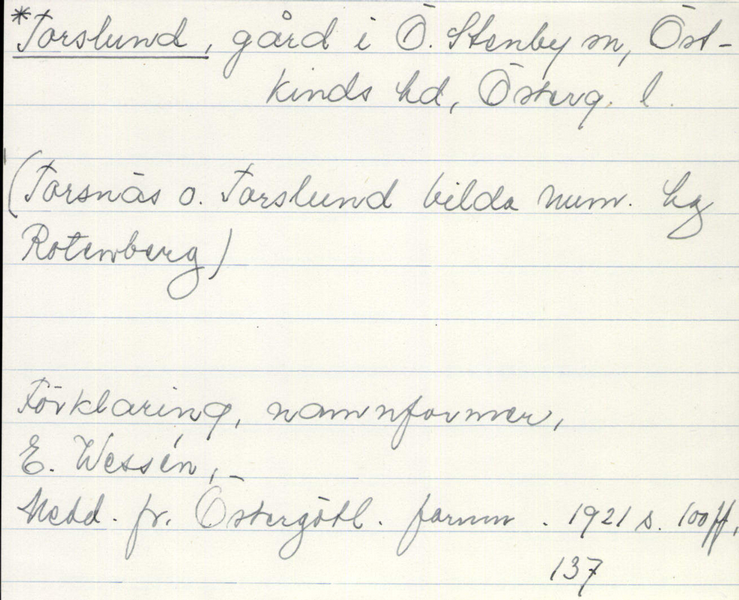 *Torslund, gård i Ö. Stenby sn, Öst-
kinds hd, Österg. l.
(Torsnäs o. Torslund bilda num. hg
Rotenberg)
Förklaring, namnformer,
E. Wessén,
Medd. fr. Östergötl. fornm. 1921 s. 100 ff,
137